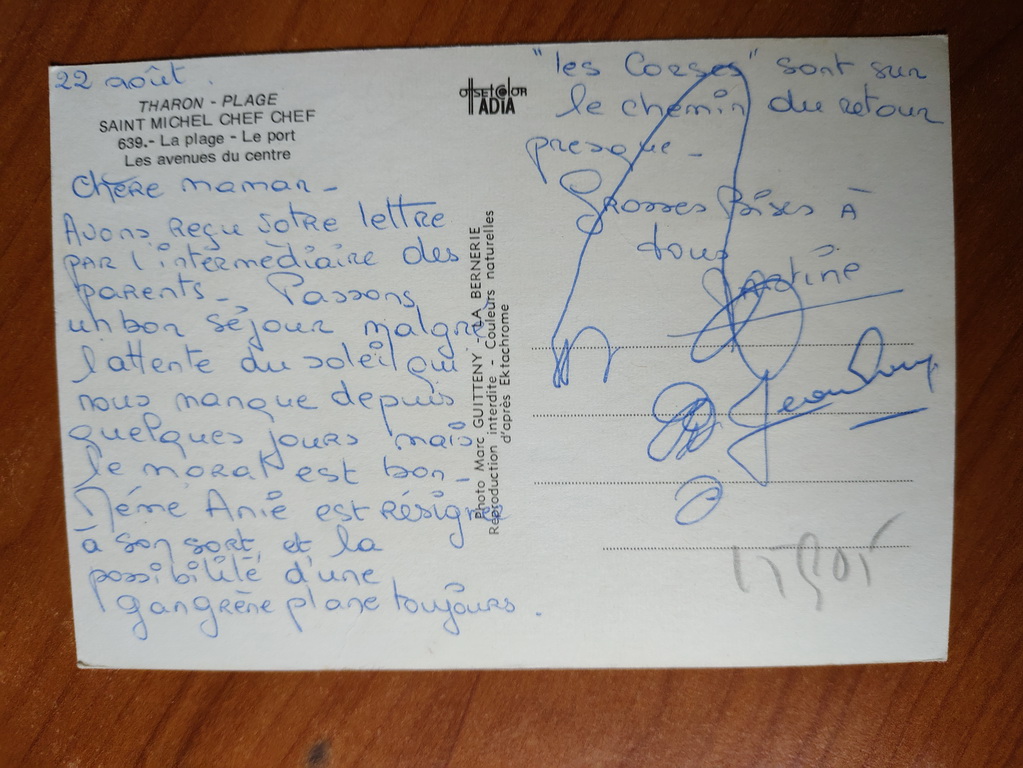 22 août.
THARON - PLAGE
SAINT MICHEL CHEF CHEF
639.- La plage - Le port
Les avenues du centre
Chère maman -
Avons reçu votre lettre
par l'intermédiaire des
parents - Passons
un bon séjour malgré
l'attente du soleil qui
nous manque depuis
quelques jours mais
le moral est bon -
Mémé Anie est résigné
à son sort, et la
possibilité d'une
gangrène plane toujours.
offsetcolor
ADIA
Photo Marc GUITTENY - LA BERNERIE
Reproduction interdite - Couleurs naturelles
d'après Ektachrome
"les Corses" sont sur
le chemin du retour
presque -
Grosses bises à
tous
Martine